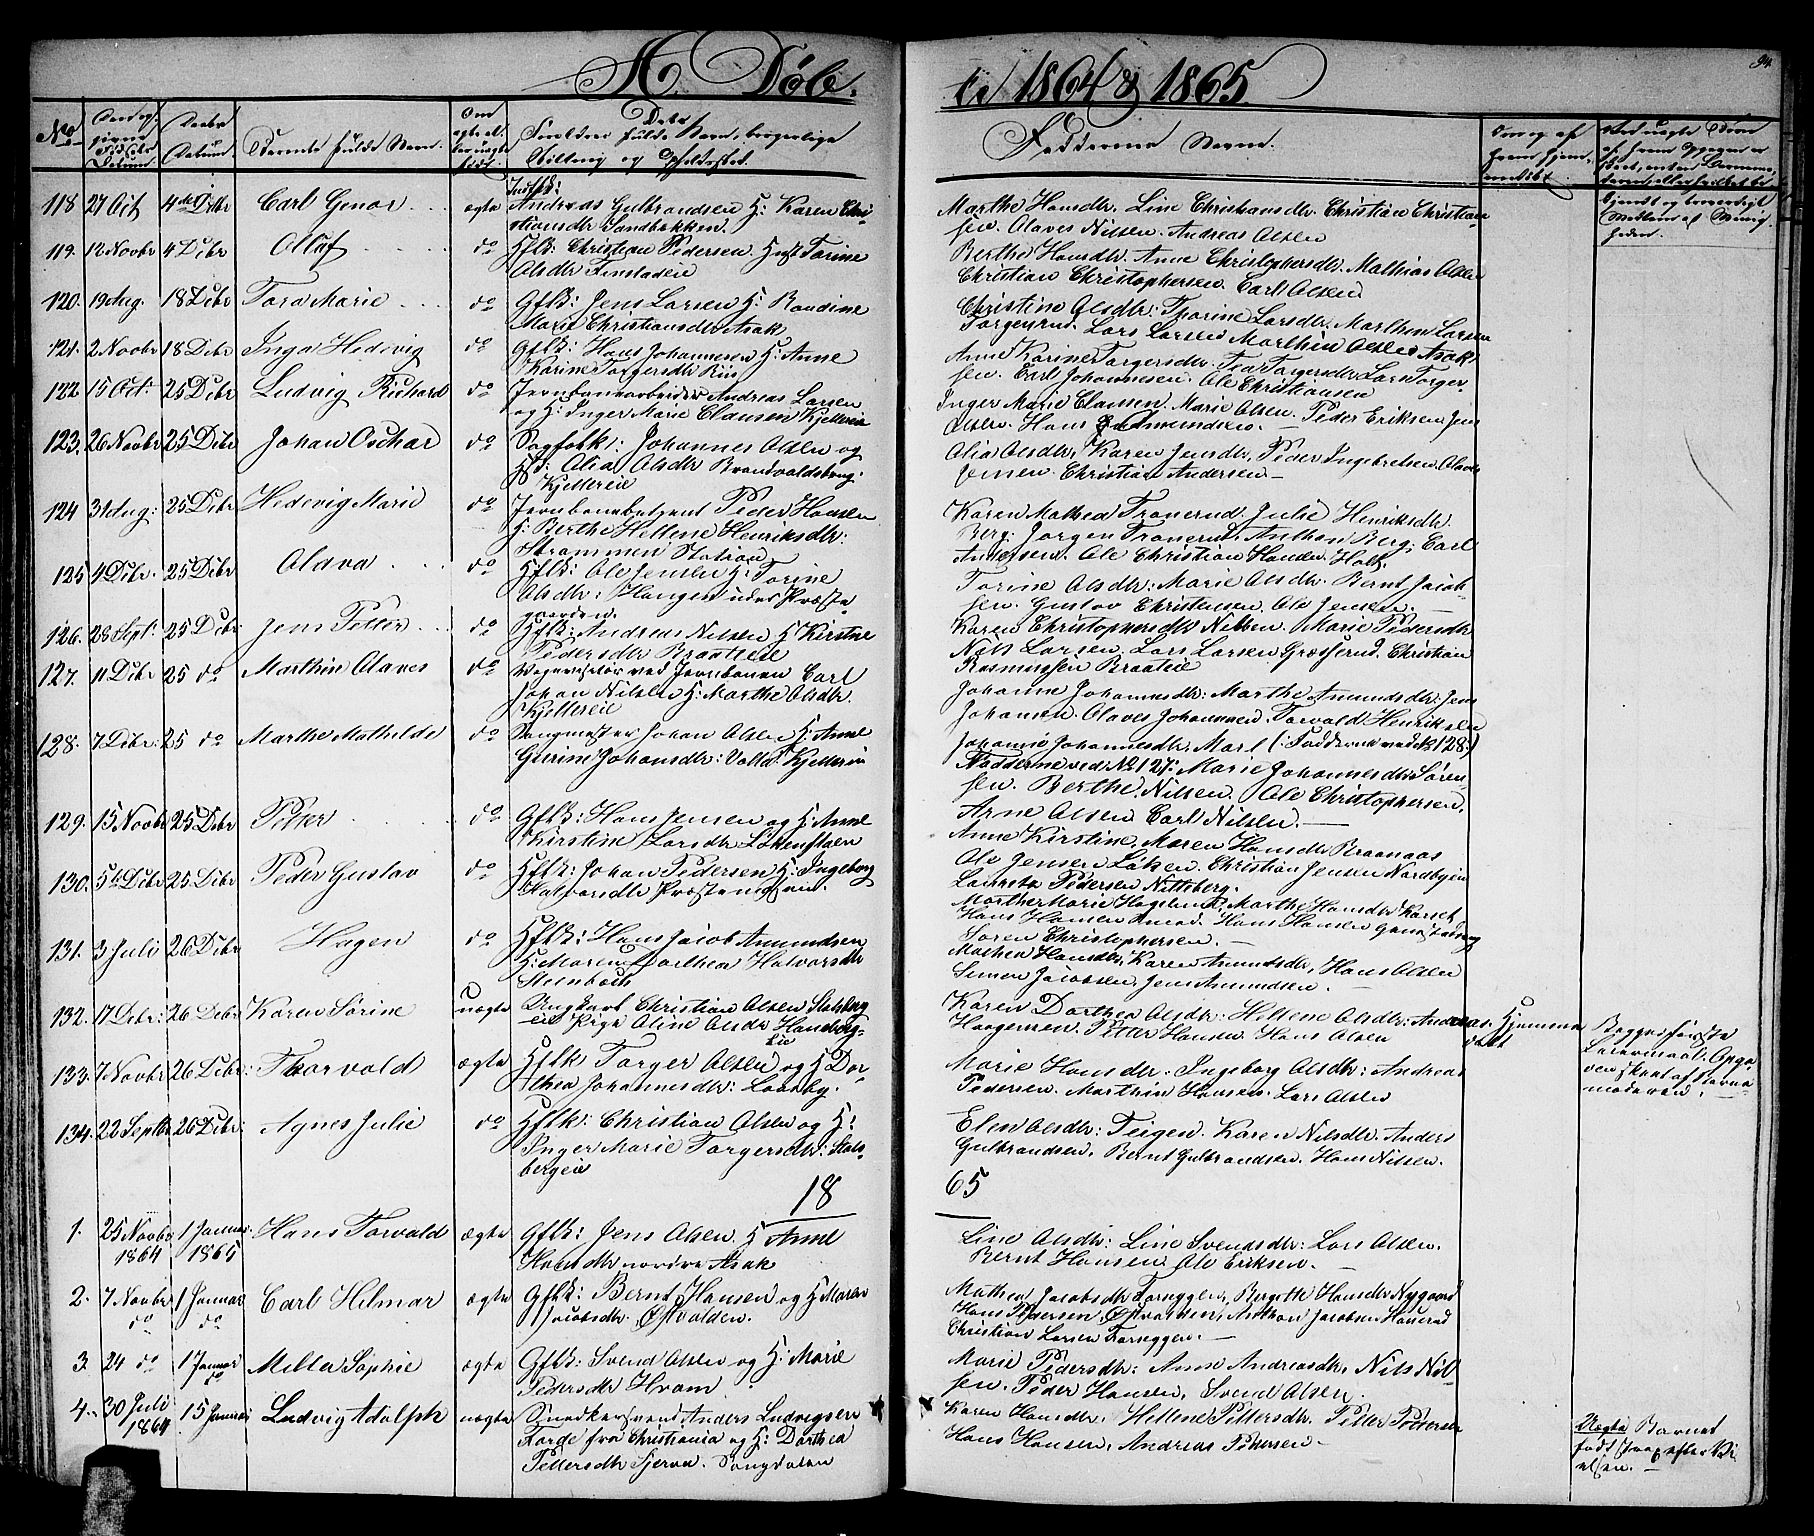 A. Døb.
te 1864 & 1865
94.
No
Barnets fulde Navn.
Forældres fulde Navn, borgerlige
Stilling og Opholdssted.
Faddernes Navne.
118 27 Oct 4de Dcbr Carl Genar ægte Andreas Gulbrandsen H: Karen Chri-
stiansdtr Sandbakken.
Marthe Hansdtr. Line Christiansdtr. Christian Christian-
sen. Olaves Nilsen. Andreas Olsen
119. 12 Novbr 4 Dcbr Olluf do Hflk: Christian Pedersen. Hust Torine
Olsdtr Finstadeie
Berthe Hansdtr. Anne Christophersdtr. Mathias Olsen
Christian Christophersen. Carl Olsen
120. 19 Aug. 18 Dcbr Tora Marie do Gflk: Jens Larsen H: Randine
Marie Christiansdtr Asak
Christine Olsdtr: Thorine Larsdtr. Marthin Larsen
Torgeyrud. Lars Larsen Marthin Olsen Asak
121. 2 Novbr 18 Dcbr Inga Hedevig do Gflk: Hans Johannesen H: Anne
Karine Torgersdtr Riis
Anne Karine Torgersdtr. Tea Torgersdtr Lars Torger-
sen. Carl Johannesen. Ole Christiansen
122 15 Oct: 25 Dcbr Ludvig Richard do Jernbanearbeider Andreas Larsen
og H: Inger Marie Clausen Kjellerie
Inger Marie Clausen. Marie Olsen. Peder Eriksen Jens
Olsen. Hans Gudmundsen. —
123. 26 Novbr 25 Dcbr Johan Oschar do Sagfolk: Johannes Olsen og
H: Olia Olsdtr Brandvoldsbrug:
Kjellereie
Olia Olsdtr, Karen Jensdtr, Peder Ingebretsen, Olaves
Jensen. Christian Andersen —
124 31 Aug: 25 Dcbr Hedevig Marie do Jernbanebetjent Peder Hansen
H: Berthe Hellene Henriksdtr:
Strømmen Station
Karen Mathea Tranerud. Julie Henriksdtr.
Berg: Jørgen Tranerud. Anthon Berg: Carl
Andersen. Ole Christian Hansen Holt.
125 4 Dcbr. 25 Dcbr Olava do Hflk: Ole Jensen H: Torine
Olsdtr: Haugen under Præste-
gaarden
Torine Olsdtr: Marie Olsdtr. Bernt Jacob-
sen. Gustav Christensen. Ole Jensen. —
126. 28 Sept: 25 Dcbr. Jens Petter do Hflk: Andreas Nilsen H Kirstne
Pedersdtr Braateie
Karen Christophersdtr Nilsen. Marie Pedersdtr
Nils Larsen. Lars Larsen Græsserud. Christian
Rasmussen Braateie
127. 11 Dcbr 25 do Marthin Olaves do Vognvisiter ved Jernbanen Carl
Johan Nilsen H: Marthe Olsdtr.
Kjellereie
Johanne Johannesdtr: Marthe Amundsdtr. Jens
Johansen. Olaves Johannesen. Torvald Henriksen
128. 7 Dcbr: 25 do Marthe Mathilde do Sangmester Johan Olsen H: Anne
Gurine Johansdtr: Kjellereie
Johanne Johannesdtr. (: Fadderne ved No 128:)
Fadderne ved: No 127: Marie Johannesdtr Søren-
sen. Berthe Nilsen. Ole Christophersen.
Arne Olsen Carl Nilsen. —
129. 15 Novbr 25 Dcbr Petter do Gflk: Hans Jensen og H: Anne
Kirstine Larsdtr Løkenstøen
Anne Kirstine, Maren Hansdtr Braanaas
Ole Jensen Løken. Christian Jensen Nordbyen
130. 5te Dcbr 25 Dcbr Peder Gustav do Hflk: Johan Pedersen H: Ingeborg
Halvorsdtr
Lauretz Pedersen Nittberg.
Marthe Marie Hagelund. Marthe Hansdtr
Hans Hansen. Hans Hansen
Søren Christophersen. —
131. 3 Juli 26 Dcbr Hagen do Hflk: Hans Jacob Amundsen
H: Maren Dorthea Halvorsdtr
Stenbach
Mathea Hansdtr, Karen Amundsdtr, Hans Olsen
Simen Jacobsen, Jens Amundsen. —
132. 17 Dcbr: 26 Dcbr Karen Sørine uægte Ungkarl Christian Olsen
eie Pige Oline Olsdtr Hamborg-
eie
Karen Dorthea Olsdtr: Hellene Olsdtr: Andreas
Haagensen. Petter Hansen. Hans Olsen
Hjemme
døbt
Begges første
Leiermaal. Opga-
ven skeet af Barne-
moderen. —
133. 7 Novbr 26 Dcbr. Thorvald ægte Hflk Torger Olsen og H Dor-
thea Johannesdtr: Losby.
Marie Hansdtr. Ingeborg Olsdtr: Andreas
Pedersen. Marthin Hansen. Lars Olsen
134. 22 Septbr 26 Dcbr: Agnes Julie do Hflk: Christian Olsen og H:
Inger Marie Torgersdtr: Stals-
bergeie
Elen Olsdtr: Teigen. Karen Nilsdtr. Anders
Gulbrandsen. Bernt Gulbrandsen. Hans Nilsen.
18
65
1. 25 Novbr 1864 1 Januar 1865 Hans Torvald ægte Gflk: Jens Olsen. H Anne
Hansdtr nordre Asak
Line Olsdtr: Line Svendsdtr: Lars Olsen.
Bernt Hansen Ole Eriksen. —
2. 7 Novbr do 1 Januar do Carl Hilmar ægte Gflk: Bernt Hansen og H. Maren
Jacobsdtr, Østvolden.
Mathea Jacobsdtr Torneggen, Bergitte Hansdtr Nygaard
Hans Pedersen, Østvolden, Anthon Jacobsen Hauerud
Christian Larsen Torneggen. —
3. 24 do 1 Januar do Milla Sophie ægte Gflk: Svend Olsen og H: Marie
Pedersdtr Hvam
Marie Pedersdtr: Anne Andreasdtr, Nils Nil-
sen. Peder Hansen, Svend Olsen.
4. 30 Juli 1864 15 Januar Ludvig Adolph uægte Snedkersvend Anders Ludvigsen
Torde fra Christiania og H: Dorthea
Pettersdtr Bjerva. Sangdalen
Karen Hansdtr. Hellene Pettersdtr. Petter Pedersen
Hans Hansen, Andreas Pedersen. —
Uægte Barnet
født for efter Vi-
elsen. —